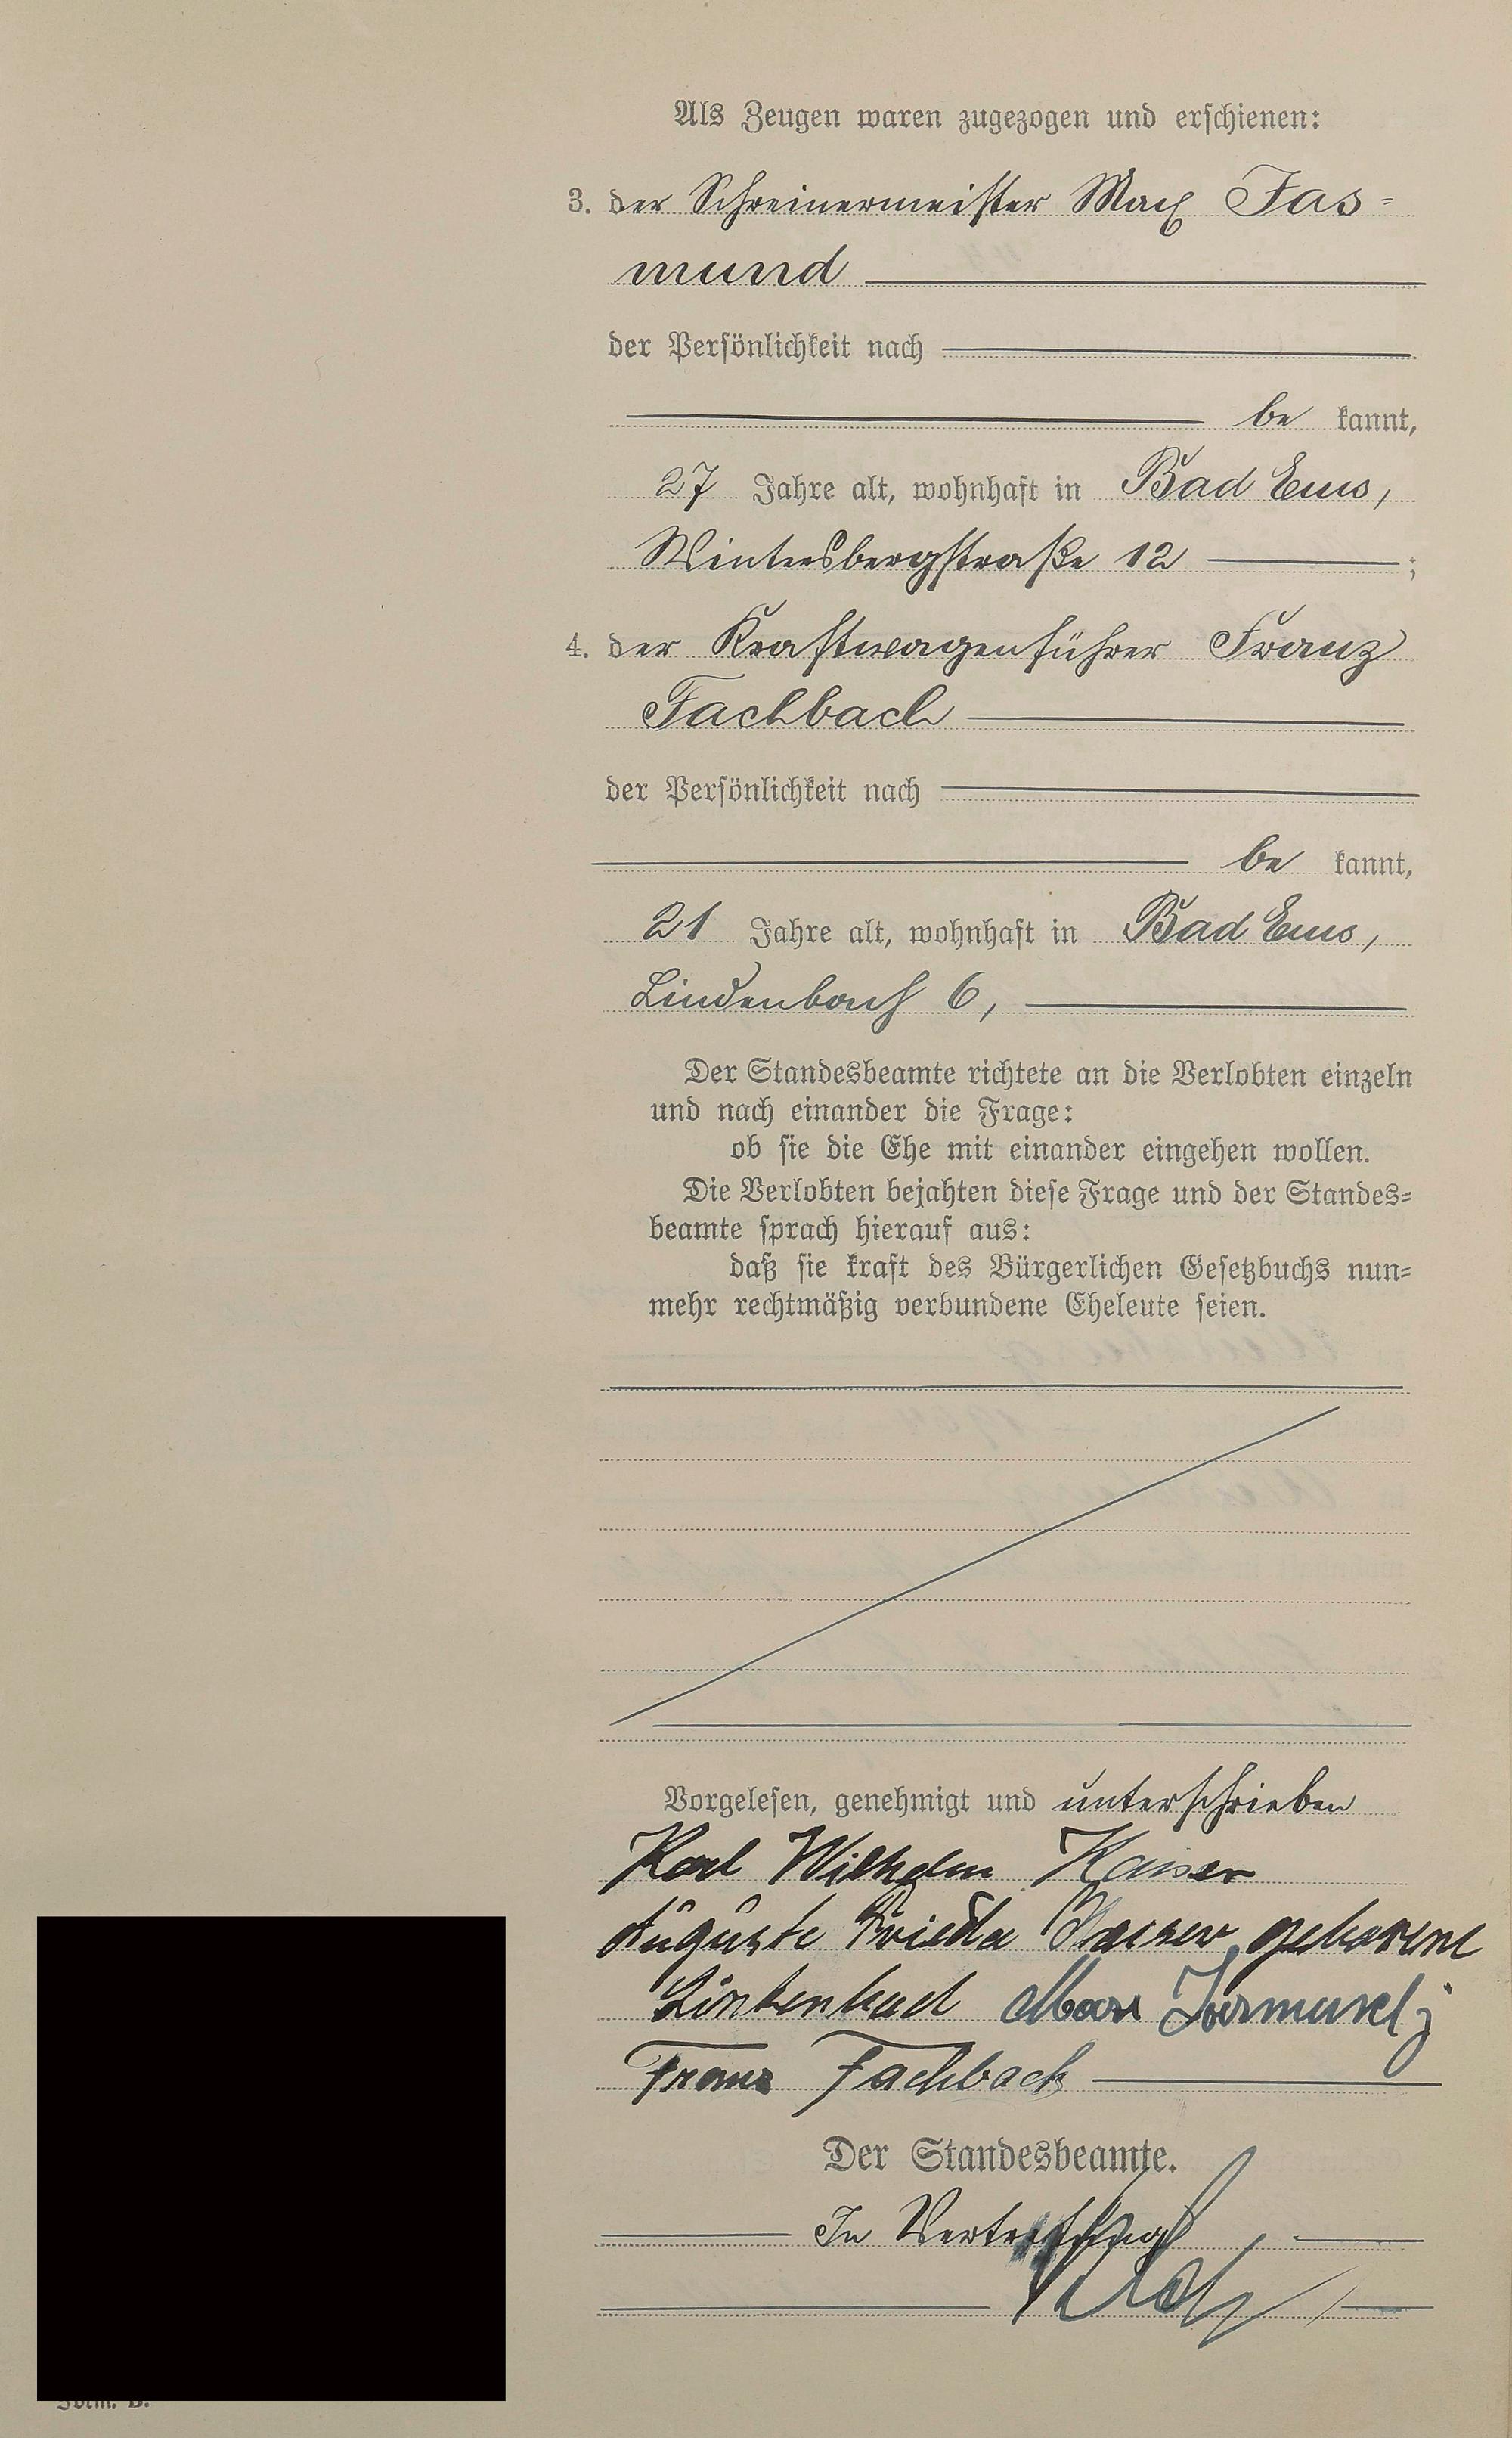 Als Zeugen waren zugezogen und erschienen:
3. der Schreinermeister Max Jas=
mund
der Persönlichkeit nach
be kannt,
27 Jahre alt, wohnhaft in Bad Ems,
Wintersbergstraße 12 ;
4. der Kraftwagenführer Franz
Fachbach
der Persönlichkeit nach
be kannt,
21 Jahre alt, wohnhaft in Bad Ems,
Lindenbach 6,
Der Standesbeamte richtete an die Verlobten einzeln
und nach einander die Frage:
ob sie die Ehe mit einander eingehen wollen.
Die Verlobten bejahten diese Frage und der Standes=
beamte sprach hierauf aus:
daß sie kraft des Bürgerlichen Gesetzbuchs nun=
mehr rechtmäßig verbundene Eheleute seien.
Vorgelesen, genehmigt und unterschrieben
Karl Wilhelm Kaiser
Auguste Frieda Kaiser geborene
Max
Franz Fachbach
Der Standesbeamte.
In Vertretung